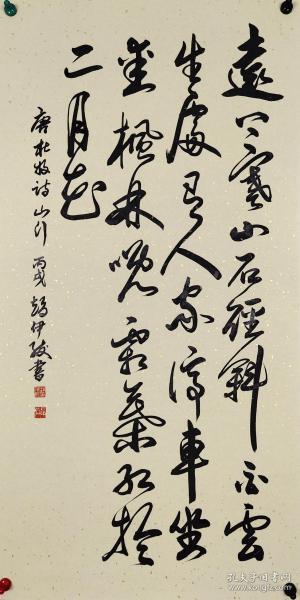 遠上寒山石徑斜白雲
生處有人家停車坐
愛楓林晚霜葉紅於
二月花
唐杜牧詩山行 丙戌 伊 書
孔夫子旧书网